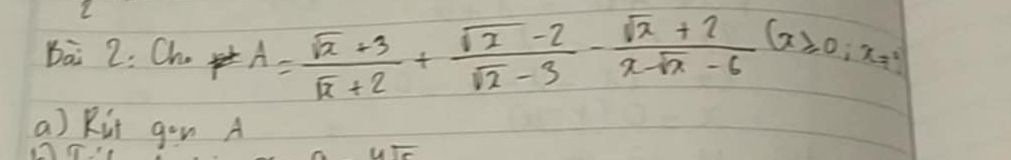 Bài 2: Cho A = (√x + 3)/(√x + 2) + (√x - 2)/(√x - 3) - (√x + 2)/(x - √x - 6) (x ≥ 0; x
a) Rút gọn A